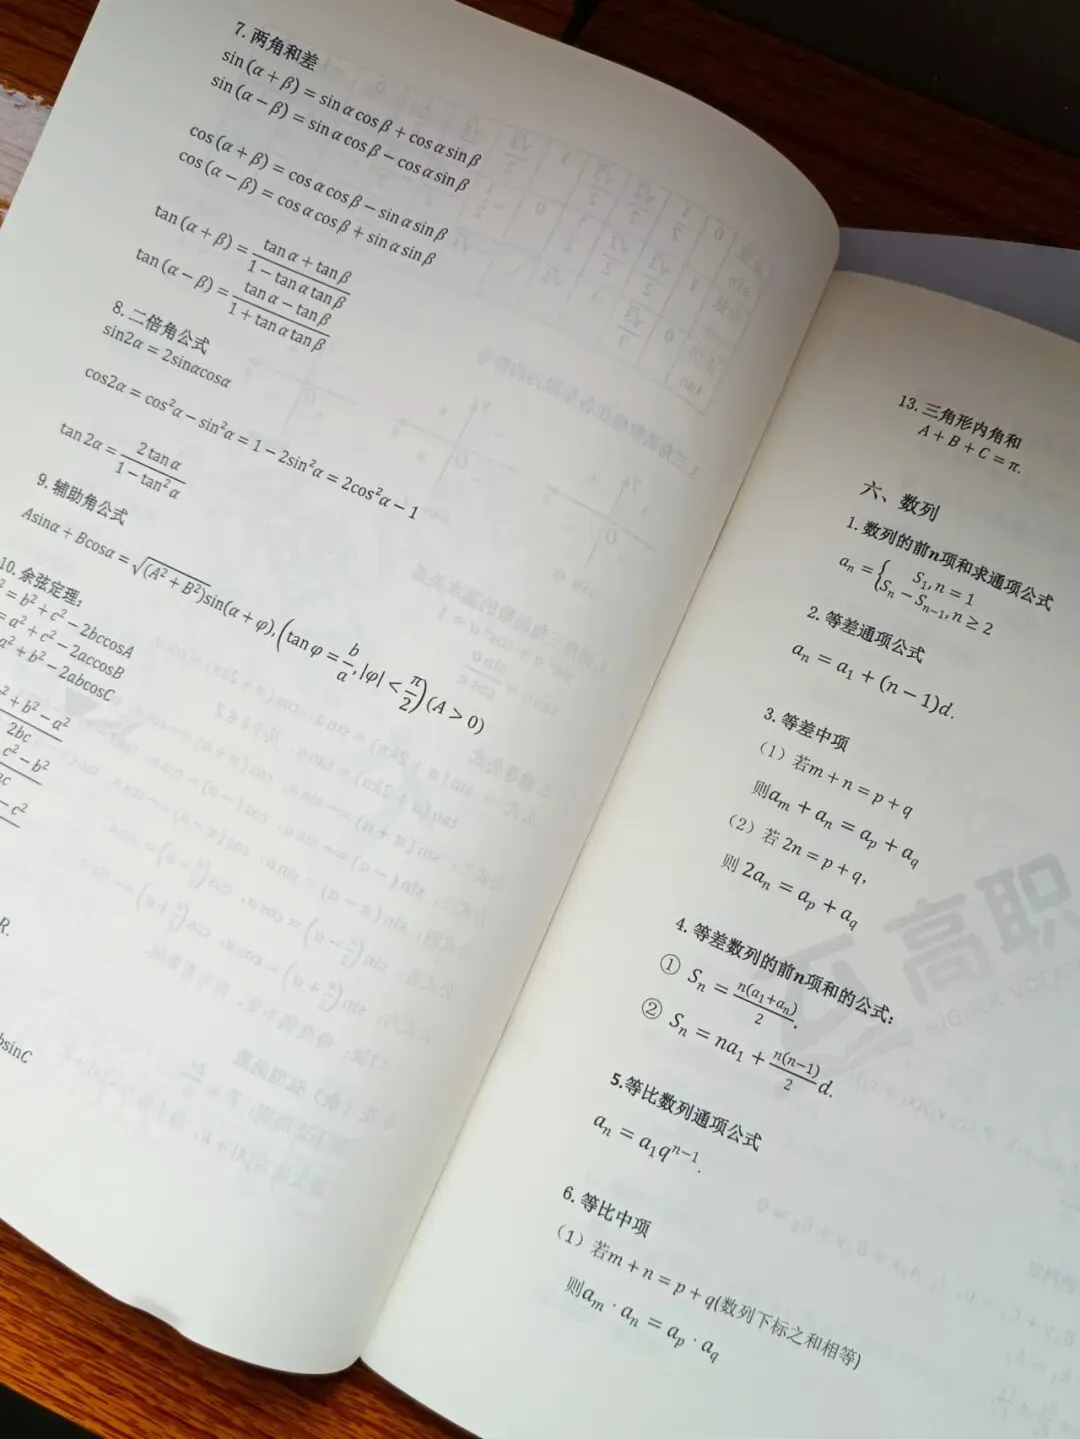 7. 两角和差
sin (α + β) = sin α cos β + cos α sin β
sin (α − β) = sin α cos β − cos α sin β
cos (α + β) = cos α cos β − sin α sin β
cos (α − β) = cos α cos β + sin α sin β
tan (α + β) = (tan α + tan β)/(1 − tan α tan β)
tan (α − β) = (tan α − tan β)/(1 + tan α tan β)
8. 二倍角公式
sin2α = 2sinαcosα
cos2α = cos²α − sin²α = 1 − 2sin²α = 2cos²α − 1
tan 2α = 2 tan α/(1 − tan² α)
9. 辅助角公式
Asinα + Bcosα = √(A² + B²)sin(α + φ), (tan φ = b/a, |φ| < π/2)(A > 0)
10. 余弦定理:
² = b² + c² − 2bccosA
= a² + c² − 2accosB
a² + b² − 2abcosC
² + b² − a²
2bc
c² − b²
ac
− c²
R.
bsinC
13. 三角形内角和
A + B + C = π.
六、数列
1. 数列的前n项和求通项公式
aₙ = { S₁, n = 1
Sₙ − Sₙ₋₁, n ≥ 2
2. 等差通项公式
aₙ = a₁ + (n − 1)d.
3. 等差中项
（1）若m + n = p + q
则aₘ + aₙ = aₚ + a_q
（2）若 2n = p + q,
则 2aₙ = aₚ + a_q
4. 等差数列的前n项和的公式:
① Sₙ = n(a₁+aₙ)/2.
② Sₙ = na₁ + n(n−1)/2 d.
5.等比数列通项公式
aₙ = a₁qⁿ⁻¹.
6. 等比中项
（1）若m + n = p + q(数列下标之和相等)
则aₘ · aₙ = aₚ · a_q
高职
HIGHER VOCA